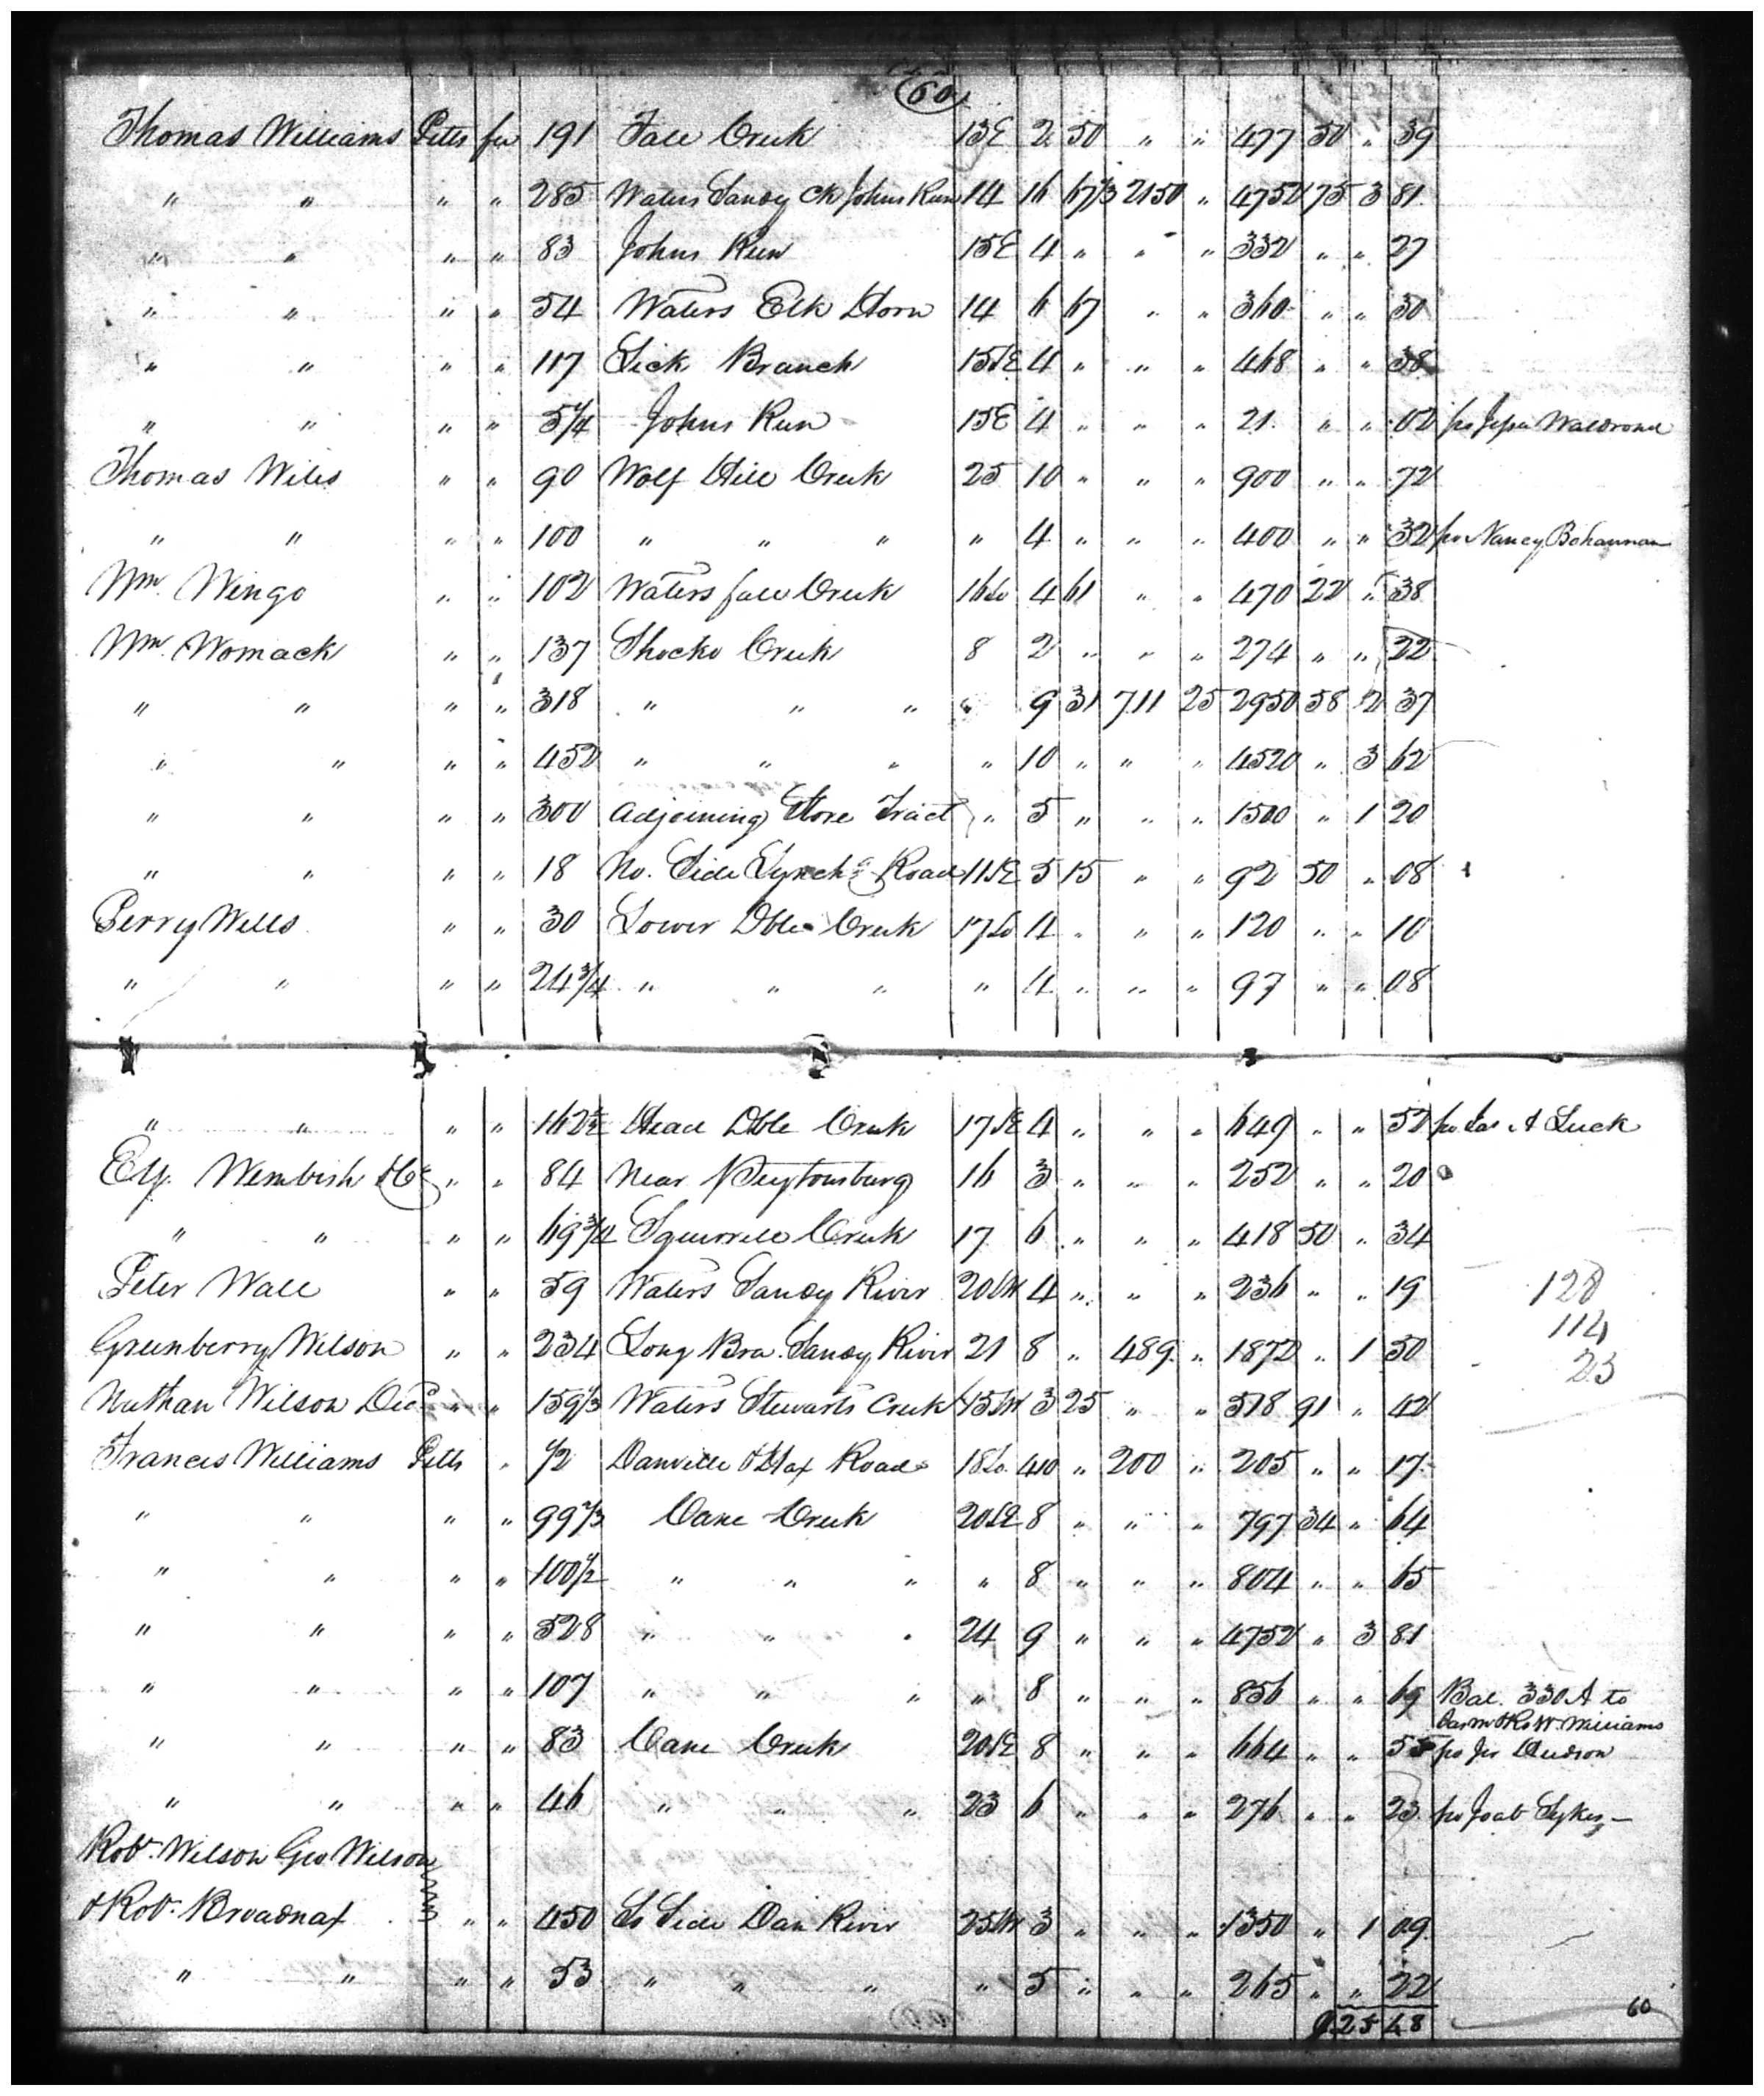 60
Thomas Williams Pitts fee 191 Fall Creek 13E 2 50 " " 477 50 " 39
" " " " 285 Waters Sandy Ck Johns Run 14 16 67⅓ 2150 " 4752 75 3 81
" " " " 83 Johns Run 15E 4 " " " 332 " " 27
" " " " 54 Waters Elk Horn 14 6 67 " " 360 " " 30
" " " " 117 Lick Branch 15NE 4 " " " 468 " " 38
" " " " 5¼ Johns Run 15E 4 " " " 21 " " 02 pr Jesse Waldrond
Thomas Wiles " " 90 Wolf Hill Creek 25 10 " " " 900 " " 72
" " " " 100 " " " " 4 " " " 400 " " 32 pr Nancy Bohannan
Wm. Wingo " " 102 Waters fall Creek 16So 4 61 " " 470 22 " 38
Wm. Womack " " 137 Shocko Creek 8 2 " " " 274 " " 22
" " " " 318 " " " " 9 31 711 25 2950 58 2 37
" " " " 452 " " " " 10 " " " 4520 " 3 62
" " " " 300 Adjoining Store Tract " 5 " " " 1500 " 1 20
" " " " 18 No. Side Lynchg Road 11NE 5 15 " " 92 50 " 08
Perry Wells " " 30 Lower Dble Creek 17So 4 " " " 120 " " 10
" " " " 24¾ " " " " 4 " " " 97 " " 08
" " " " 162½ Head Dble Creek 17NE 4 " " " 649 " " 52 pr Jas A Luck
Ely. Wimbish &Co " " 84 Near Peytonsburg 16 3 " " " 252 " " 20
" " " " 69¾ Squirrell Creek 17 6 " " " 418 50 " 34
Peter Wall " " 59 Waters Sandy River 20SW 4 " " " 236 " " 19 128
Greenberry Wilson " " 234 Long Bra. Sandy River 21 8 " 489 " 1872 " 1 50 114
23
Nathan Wilson Decd " " 159⅓ Waters Stewarts Creek 15SW 3 25 " " 518 91 " 42
Francis Williams Pitts " ½ Danville & Hax Road 18So 410 " 200 " 205 " " 17
" " " " 99⅔ Cane Creek 20SE 8 " " " 797 34 " 64
" " " " 100½ " " " " 8 " " " 804 " " 65
" " " " 528 " " " 24 9 " " " 4752 " 3 81
" " " " 107 " " " " 8 " " " 856 " " 69 Bal. 330 A to
Jas M & Ro W. Williams
" " " " 83 Cane Creek 20SE 8 " " " 664 " " 55 pr Jno Hudson
" " " " 46 " " " 23 6 " " " 276 " " 23 pr Joab Sykes
Robt. Wilson Geo Wilson
& Robt. Broadnax " " 450 So Side Dan River 25SW 3 " " " 1350 " 1 09
" " " " 53 " " " " 5 " " " 265 " " 22
25 48
60